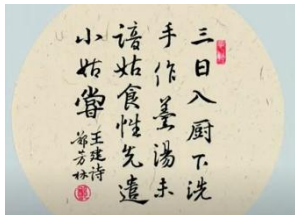 三日入厨下洗
手作羹汤未
谙姑食性先遣
小姑尝
王建诗